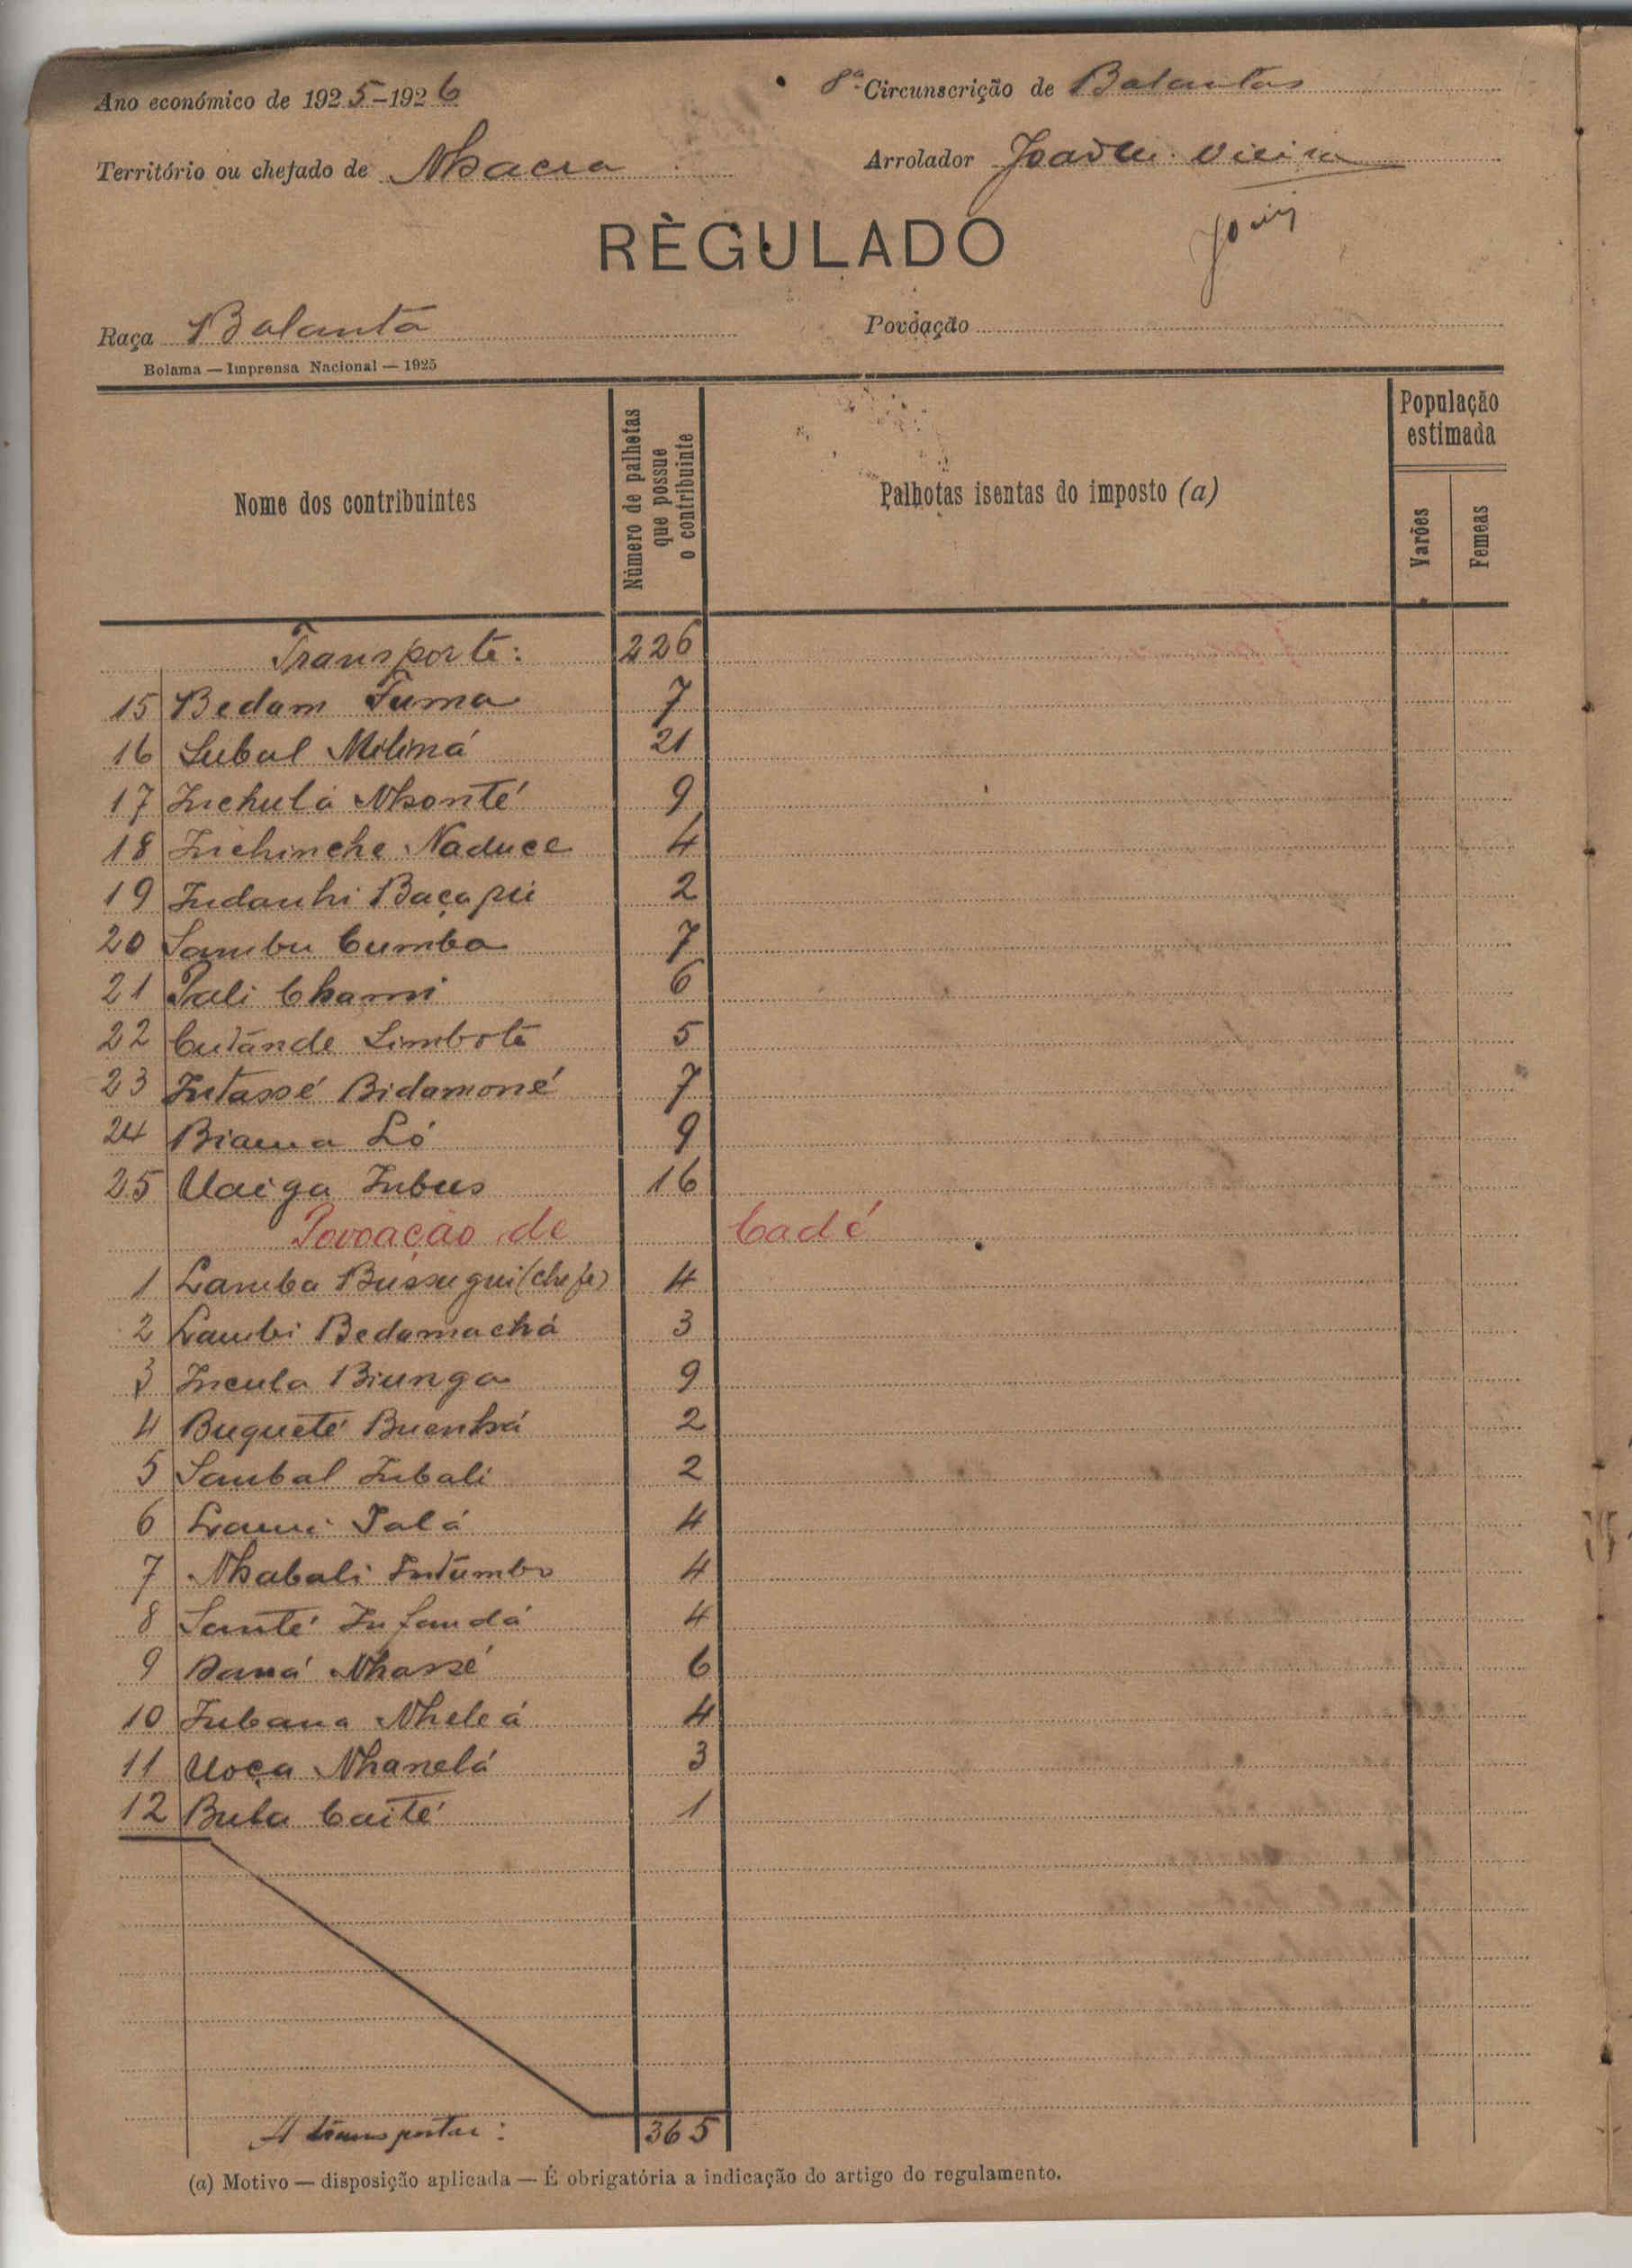 Ano económico de 1925-1926
8ª Circunscrição de Balantas
Território ou chefado de Nhacra
Arrolador Joaqm. Vieira
RÈGULADO
Raça Balanta
Povoação
Bolama — Imprensa Nacional — 1925
Nome dos contribuintes
Número de palhetas que possue o contribuinte
Palhotas isentas do imposto (a)
População estimada
Varões
Femeas
Transporte: 226
15 Bedam Tuma 7
16 Subal Miliná 21
17 Inchulá Nhonté 9
18 Inchinche Naduce 4
19 Indanhi Baçapii 2
20 Sambu Cumba 7
21 Pali Chami 6
22 Cutánde Limbote 5
23 Intassé Bidamoné 7
24 Biama Ló 9
25 Uaiga Inbus 16
Povoação de Cadé
1 Lamba Bussugui (chefe) 4
2 Lambi Bedamachá 3
3 Incula Biunga 9
4 Buqueté Buenhá 2
5 Sambal Inbali 2
6 Lami Talá 4
7 Nhabali Intumbo 4
8 Santé Infandá 4
9 Daná Nhassé 6
10 Inbana Nheleá 4
11 Uoça Nhanelá 3
12 Bula Caité 1
A transportar: 365
(a) Motivo — disposição aplicada — É obrigatória a indicação do artigo do regulamento.